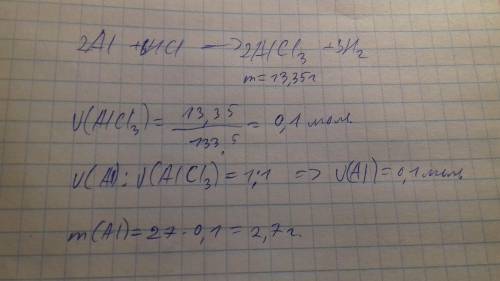 2Al + 6HCl → 2AlCl₃ + 3H₂
m = 13,35 г
ν(AlCl₃) = 13,35 / 133,5 = 0,1 моль
ν(Al) : ν(AlCl₃) = 1:1 => ν(Al) = 0,1 моль
m(Al) = 27 · 0,1 = 2,7 г.